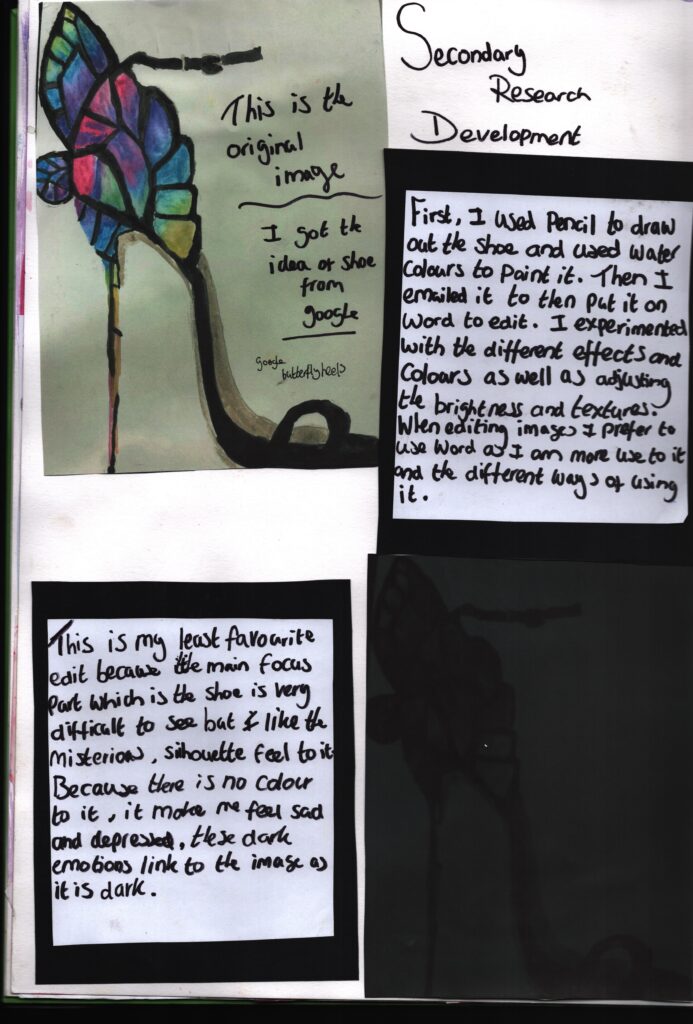 Secondary
Research
Development
This is the
original
image
I got the
idea of shoe
from
google
google
butterfly heels
First, I used Pencil to draw
out the shoe and used water
colours to paint it. Then I
emailed it to then put it on
word to edit. I experimented
with the different effects and
colours as well as adjusting
the brightness and textures.
When editing images I prefer to
use word as I am more use to it
and the different ways of using
it.
This is my least favourite
edit because the main focus
part which is the shoe is very
difficult to see but I like the
misterious, silhouette feel to it.
Because there is no colour
to it, it make me feel sad
and depressed, these dark
emotions link to the image as
it is dark.